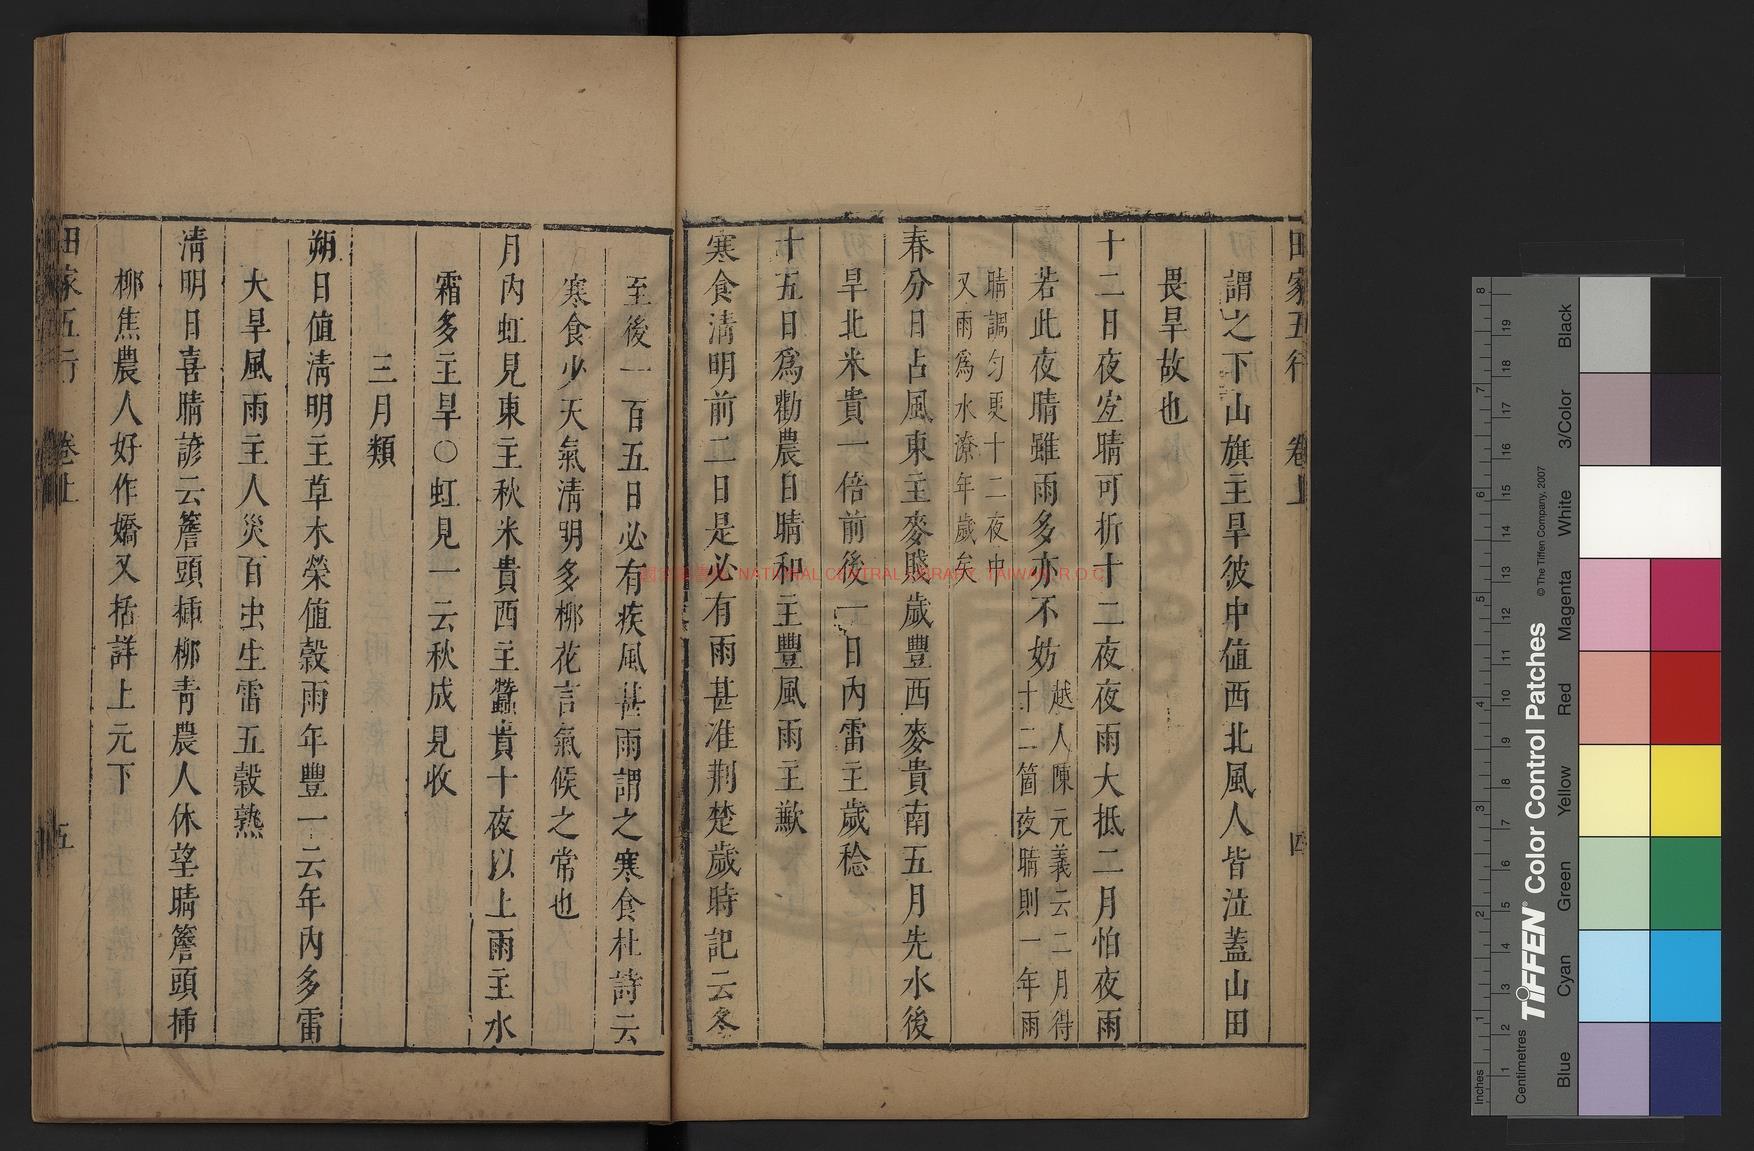 田家五行 卷上 四
謂之下山旗主旱彼中值西北風人皆泣蓋山田
畏旱故也
十二日夜宜晴可折十二夜夜雨大抵二月怕夜雨
若此夜晴雖雨多亦不妨越人陳元義云二月得
十二箇夜晴則一年雨
晴調勻更十二夜中
又雨為水潦年歲矣
春分日占風東主麥賤歲豐西麥貴南五月先水後
旱北米貴一倍前後一日內雷主歲稔
十五日為勸農日晴和主豐風雨主歉
寒食清明前二日是必有雨甚准荆楚歲時記云冬
至後一百五日必有疾風甚雨謂之寒食杜詩云
寒食少天氣清明多柳花言氣候之常也
月內虹見東主秋米貴西主蠶貴十夜以上雨主水
霜多主旱○虹見一云秋成見收
三月類
朔日值清明主草木榮值穀雨年豐一云年內多雷
大旱風雨主人災百虫生雷五穀熟
清明日喜晴諺云簷頭插柳青農人休望晴簷頭插
柳焦農人好作嬌又括詳上元下
田家五行 卷上 五
NATIONAL CENTRAL LIBRARY, TAIWAN, R.O.C
TIFFEN® Color Control Patches
© The Tiffen Company, 2007
Inches
Centimetres
Blue Cyan Green Yellow Red Magenta White 3/Color Black